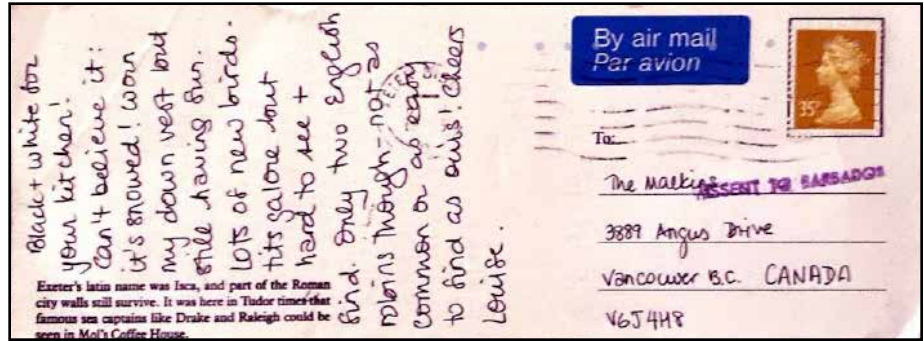 Black + white for
your kitchen!
Can't believe it:
it's snowed! Worn
my down vest but
still having fun.
Lots of new birds.
tits galore but
hard to see +
find. Only two English
robins though - not as
common or as easy
to find as ours! Cheers
Louise.
Exeter's latin name was Isca, and part of the Roman
city walls still survive. It was here in Tudor times that
famous sea captains like Drake and Raleigh could be
seen in Mol's Coffee House.
By air mail
Par avion
35P
To:
The Mackies
MISSENT TO BARBADOS
3889 Angus Drive
Vancouver B.C. CANADA
V6J4H8